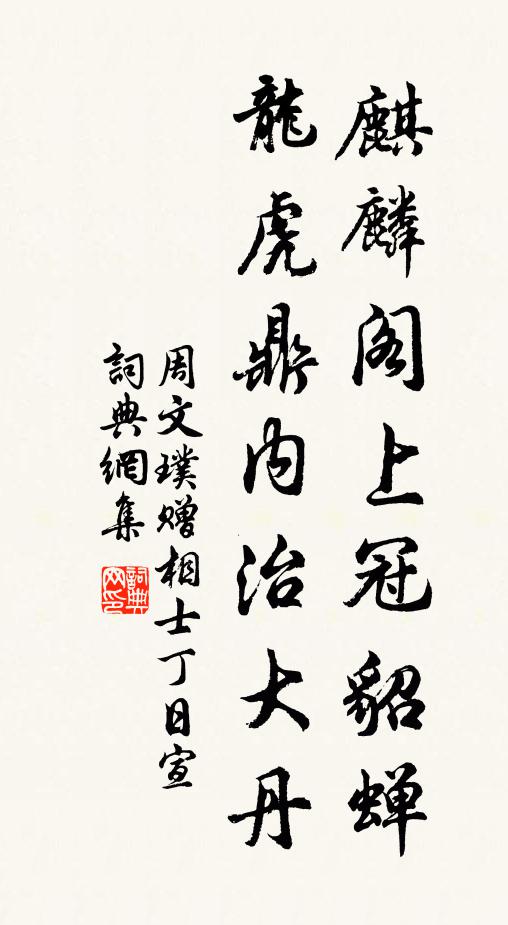 麒麟阁上冠貂蝉
龍虎鼎内治大丹
周文璞赠相士丁日宣
詞典網集
詞典网印